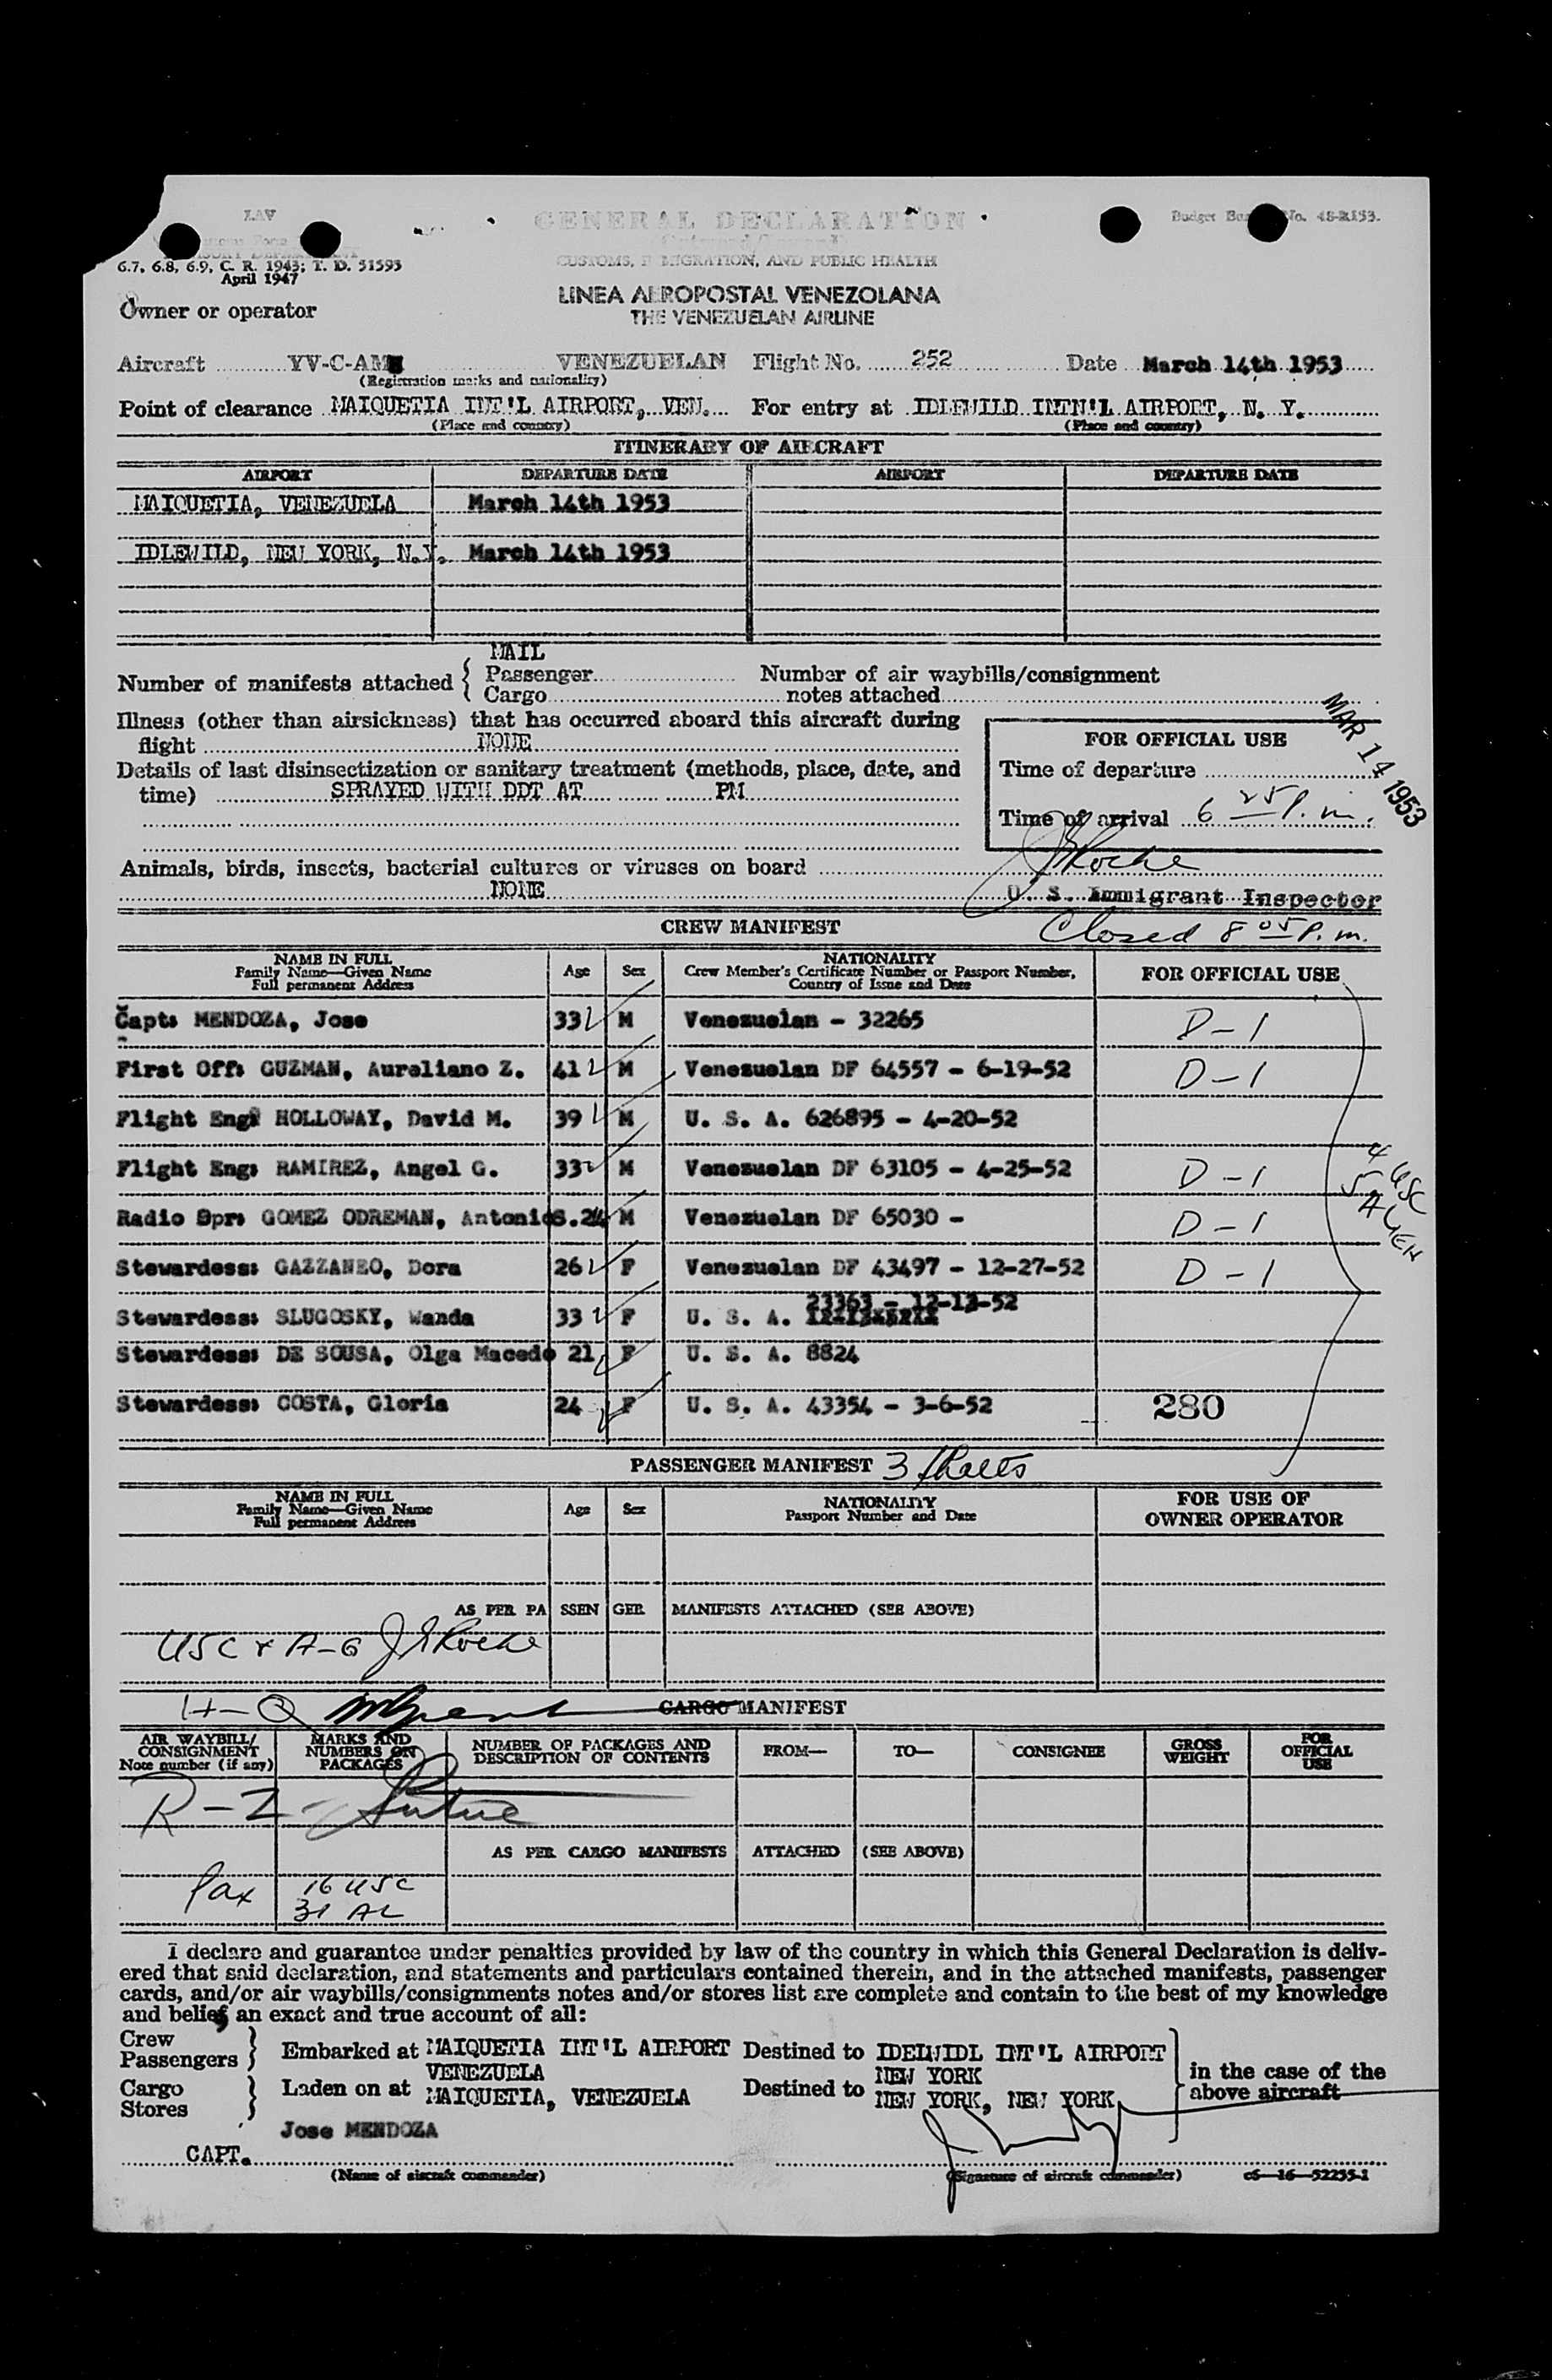 LAV
GENERAL DECLARATION
Budget No. 48-R153.
CUSTOMS, IMMIGRATION, AND PUBLIC HEALTH
6.7, 6.8, 6.9, C. R. 1943; T. D. 51593
April 1947
LINEA AEROPOSTAL VENEZOLANA
THE VENEZUELAN AIRLINE
Owner or operator
Aircraft YV-C-AM VENEZUELAN Flight No. 252 Date March 14th 1953
(Registration marks and nationality)
Point of clearance MAIQUETIA INT'L AIRPORT, VEN. For entry at IDLEWILD INTN'L AIRPORT, N. Y.
(Place and country) (Place and country)
ITINERARY OF AIRCRAFT
AIRPORT DEPARTURE DATE AIRPORT DEPARTURE DATE
MAIQUETIA, VENEZUELA March 14th 1953
IDLEWILD, NEW YORK, N.Y. March 14th 1953
MAIL
Number of manifests attached { Passenger Number of air waybills/consignment
Cargo notes attached
MAR 14 1953
Illness (other than airsickness) that has occurred aboard this aircraft during
flight NONE
FOR OFFICIAL USE
Details of last disinsectization or sanitary treatment (methods, place, date, and
time) SPRAYED WITH DDT AT PM
Time of departure
Time of arrival 6 25 P.m.
J E Roche
Animals, birds, insects, bacterial cultures or viruses on board
NONE
U. S. Immigrant Inspector
CREW MANIFEST Closed 8 05 P.m.
NAME IN FULL Age Sex NATIONALITY FOR OFFICIAL USE
Family Name—Given Name Crew Member's Certificate Number or Passport Number,
Full permanent Address Country of Issue and Date
Capt: MENDOZA, Jose 33 M Venezuelan - 32265 D-1
First Off: GUZMAN, Aureliano Z. 41 M Venezuelan DF 64557 - 6-19-52 D-1
Flight Eng: HOLLOWAY, David M. 39 M U. S. A. 626895 - 4-20-52
Flight Eng: RAMIREZ, Angel G. 33 M Venezuelan DF 63105 - 4-25-52 D-1
4 USC
5 ALIEN
Radio Opr: GOMEZ ODREMAN, Antonio S. 24 M Venezuelan DF 65030 - D-1
Stewardess: GAZZANEO, Dora 26 F Venezuelan DF 43497 - 12-27-52 D-1
Stewardess: SLUGOSKY, Wanda 33 F U. S. A. 23363 - 12-13-52
Stewardess: DE SOUSA, Olga Macedo 21 F U. S. A. 8824
Stewardess: COSTA, Gloria 24 F U. S. A. 43354 - 3-6-52 280
PASSENGER MANIFEST 3 sheets
NAME IN FULL Age Sex NATIONALITY FOR USE OF
Family Name—Given Name Passport Number and Date OWNER OPERATOR
Full permanent Address
AS PER PASSENGER MANIFESTS ATTACHED (SEE ABOVE)
USC & A-6 J E Roche
H-Q CARGO MANIFEST
AIR WAYBILL/ MARKS AND NUMBER OF PACKAGES AND FROM— TO— CONSIGNEE GROSS FOR
CONSIGNMENT NUMBERS ON DESCRIPTION OF CONTENTS WEIGHT OFFICIAL
Note number (if any) PACKAGES USE
R-2-
AS PER CARGO MANIFESTS ATTACHED (SEE ABOVE)
Pax 16 USC
31 AL
I declare and guarantee under penalties provided by law of the country in which this General Declaration is deliv-
ered that said declaration, and statements and particulars contained therein, and in the attached manifests, passenger
cards, and/or air waybills/consignments notes and/or stores list are complete and contain to the best of my knowledge
and belief, an exact and true account of all:
Crew
Passengers } Embarked at MAIQUETIA INT'L AIRPORT Destined to IDELWIDL INT'L AIRPORT
VENEZUELA NEW YORK
in the case of the
above aircraft
Cargo
Stores } Laden on at MAIQUETIA, VENEZUELA Destined to NEW YORK, NEW YORK
Jose MENDOZA
CAPT.
(Name of aircraft commander) (Signature of aircraft commander) c6—16—52255-1